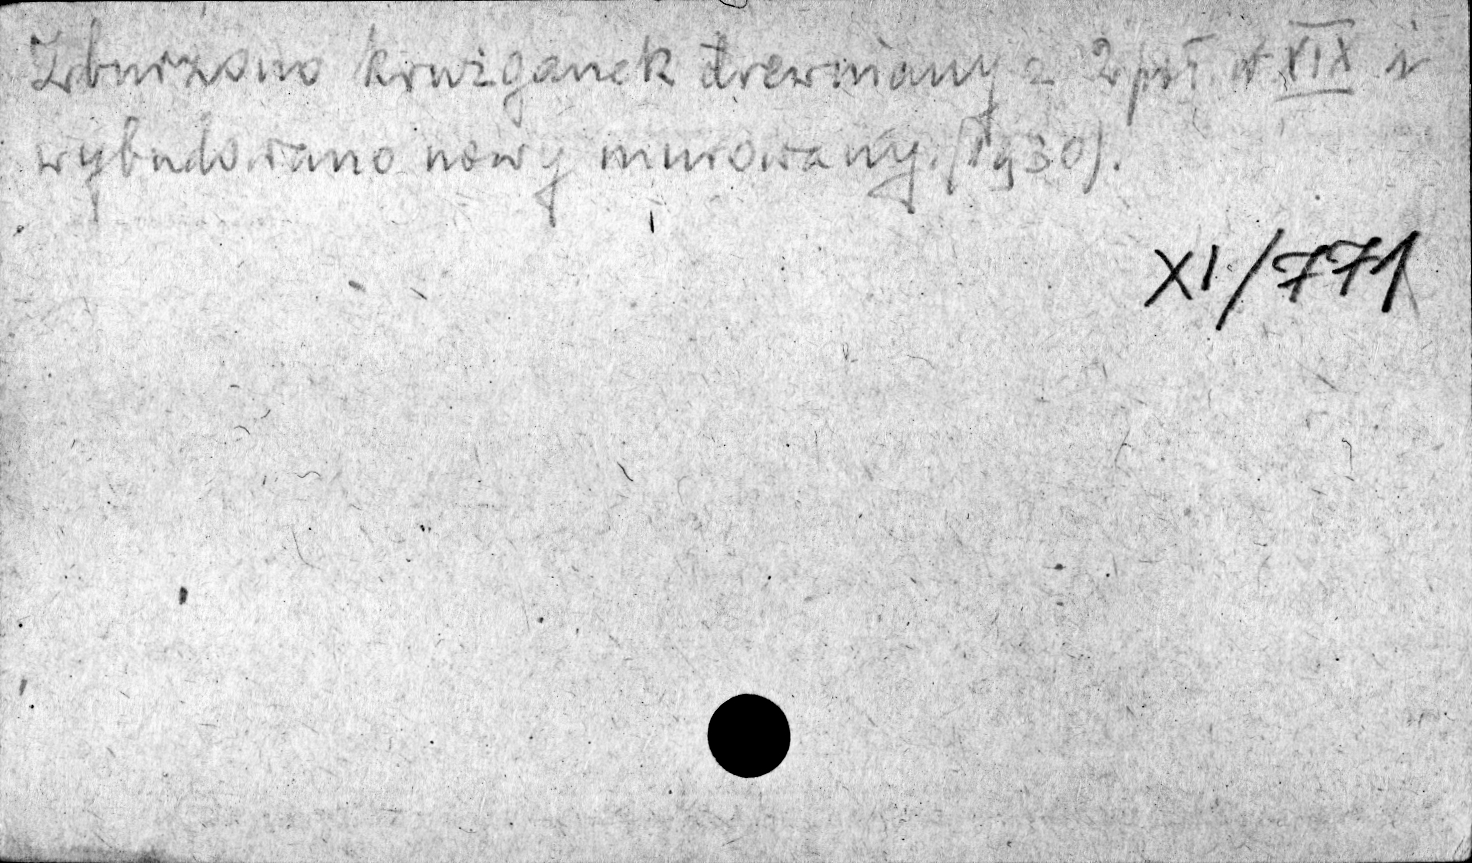 Zburzono krużganek drewniany z 2 poł. w XIX i
wybudowano nowy murowany. (1930).
XI/771